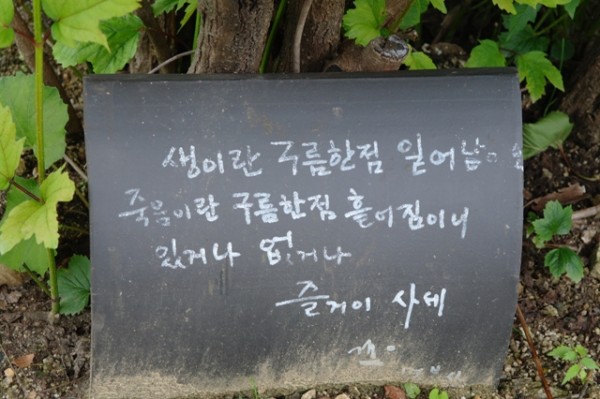 생이란 구름한점 일어남이
죽음이란 구름한점 흩어짐이니
있거나 없거나
즐거이 사세